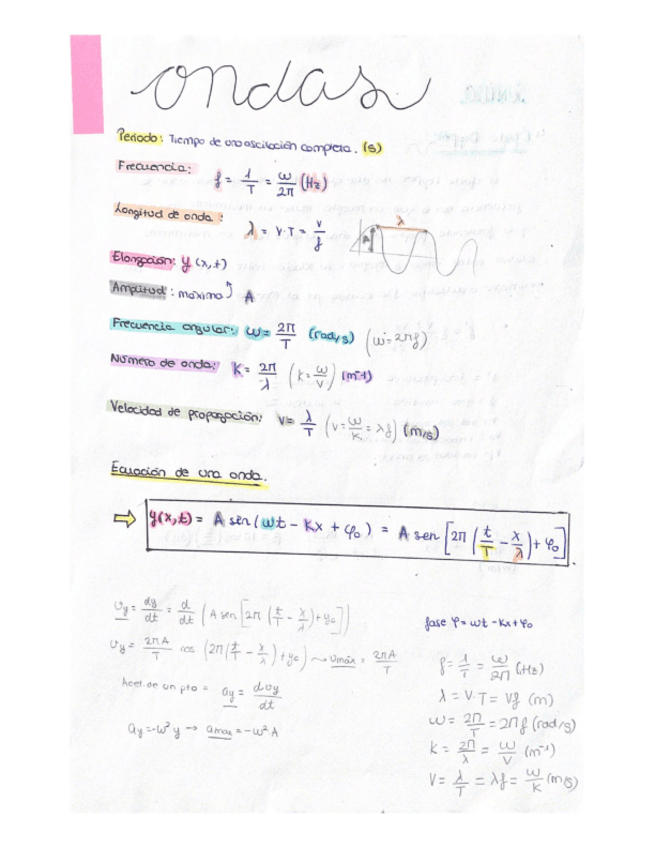 ondas
Periodo: Tiempo de una oscilación completa. (s)
Frecuencia: f = 1/T = ω/2π (Hz)
Longitud de onda: λ = v·T = v/f
λ
A
Elongación: y (x,t)
Amplitud: máxima A
Frecuencia angular: ω = 2π/T (rad/s) (ω = 2πf)
Número de onda: K = 2π/λ (K = ω/v) (m⁻¹)
Velocidad de propagación: v = λ/T (v = ω/K = λf) (m/s)
Ecuación de una onda.
⇨ y(x,t) = A sin(ωt - Kx + φ₀) = A sen[2π(t/T - x/λ) + φ₀]
vy = dy/dt = d/dt (A sen[2π(t/T - x/λ) + φ₀])
fase φ = ωt - Kx + φ₀
vy = 2πA/T cos (2π(t/T - x/λ) + φ₀) ⤳ vmáx = 2πA/T
Acel. de un pto = ay = dvy/dt
ay = -ω² y → amax = -ω² A
f = 1/T = ω/2π (Hz)
λ = V·T = Vf (m)
ω = 2π/T = 2πf (rad/s)
K = 2π/λ = ω/V (m⁻¹)
V = λ/T = λf = ω/K (m/s)